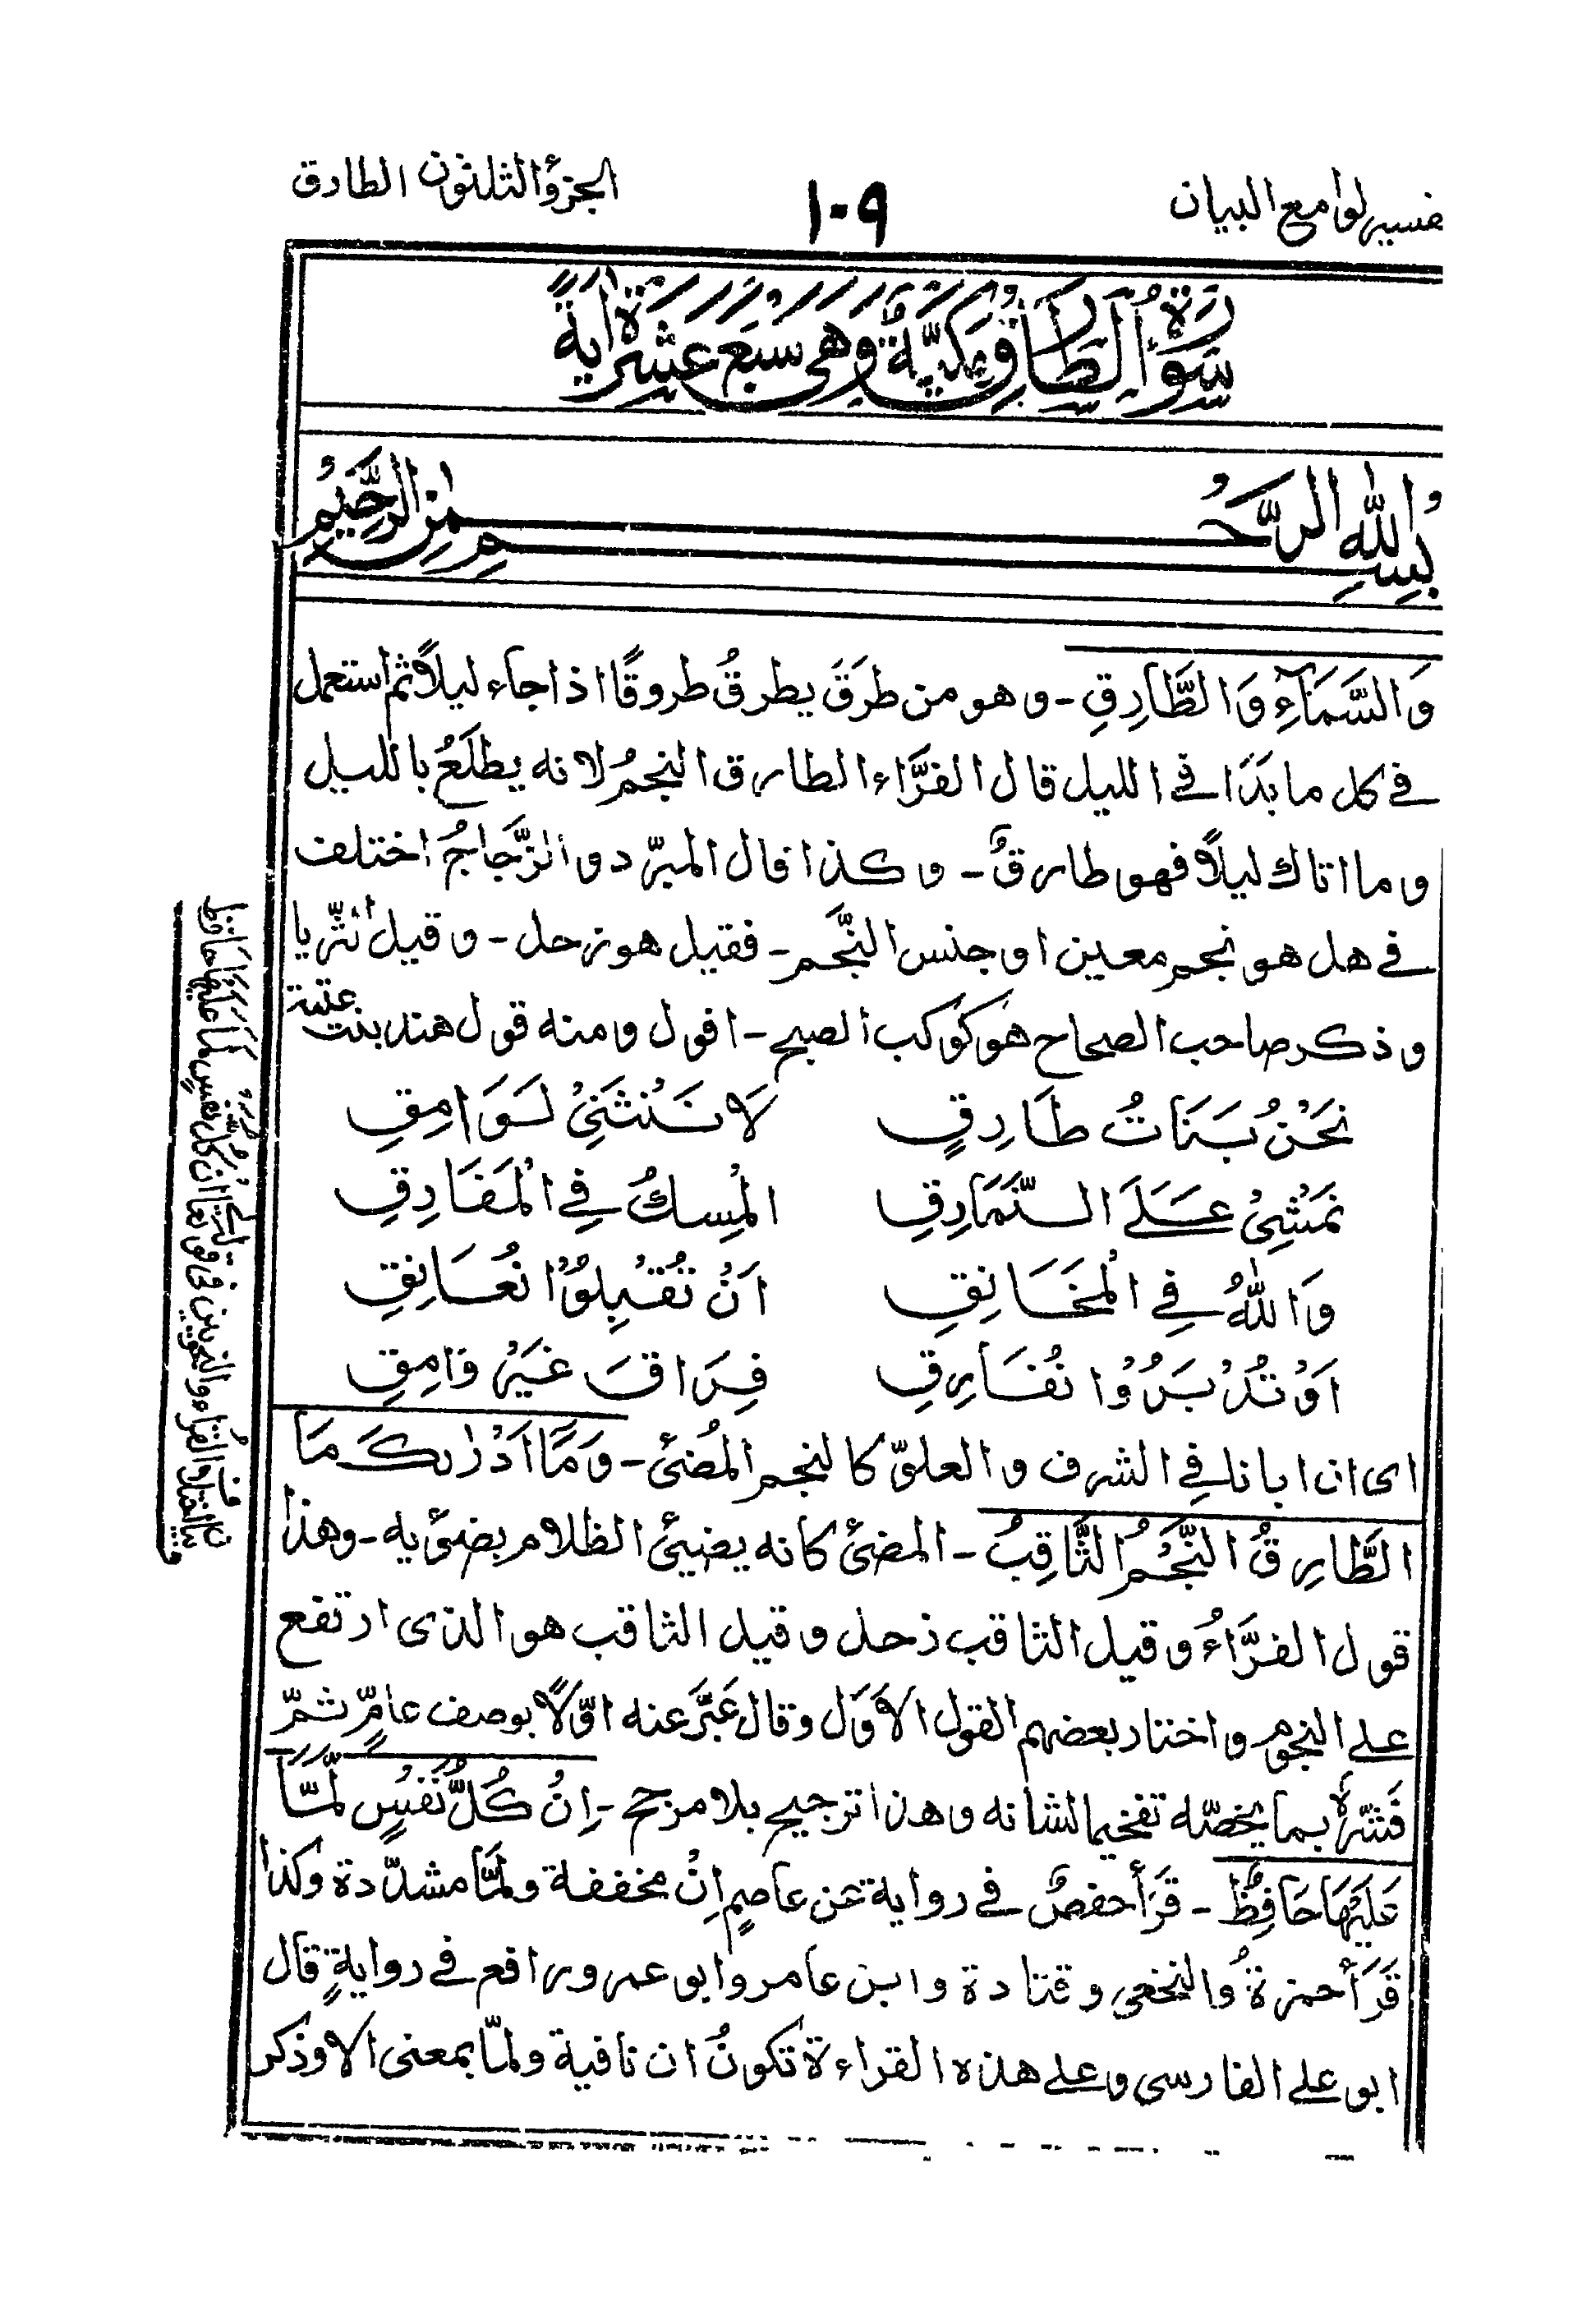 تفسير لوامع البيان
١٠٩
الجزؤ الثلثون الطارق
سُورَةُ الطَّارِقِ مَكِّيَّةٌ وَهِيَ سَبْعَ عَشْرَةَ اٰيَةً
بِسْمِ اللهِ الرَّحْمٰنِ الرَّحِيْمِ
وَالسَّمَآءِ وَالطَّارِقِ - وهو من طرَقَ يطرقُ طروقًا اذا جاء ليلاً ثم استعمل
في كل ما بَدَا في الليل قال الفرَّاء الطارق النجمُ لانه يطلَعُ بالليل
وما اتاك ليلاً فهو طارقٌ - وكذا قال المبرّد والزَّجاجُ اختلف
في هل هو نجم معين او جنس النَّجم - فقيل هو زحل - وقيل الثّريا
وذكر صاحب الصحاح هو كوكب الصبح - اقول ومنه قول هند بنت عتبة
نَحْنُ بَنَاتُ طَارِقٍ لَا نَنْثَنِيْ لَوَامِقِ
نَمْشِيْ عَلَى النَّمَارِقِ الْمِسكُ فِي الْمَفَارِقِ
وَاللهُ فِي الْمَخَانِقِ اَنْ تُقْبِلُوْا نُعَانِقِ
اَوْ تُدْبَرُوْا نُفَارِقِ فِرَاقَ غَيْرُ وَامِقِ
اى ان ابانا في الشرف والعلوّ كالنجم المُضئ - وَمَآ اَدْرٰىكَ مَا
الطَّارِقُ النَّجْمُ الثَّاقِبُ - المضئ كانه يضيئ الظلام بضوٕيه - وهذا
قول الفرَّاءُ وقيل الثاقب زحل وقيل الثاقب هو الذى ارتفع
على النجوم واختار بعضهم القول الاَوّل وقال عَبَّرَ عنه اوّلاً بوصف عامٍّ ثمّ
فَسَّرَهٗ بما يخصّه تفخيما لشانه وهذا ترجيح بلا مرجح - اِنْ كُلُّ نَفْسٍ لَّمَّا
عَلَيْهَا حَافِظٌ - قَرَأ حفصٌ في رواية عن عاصمٍ اِنْ مخففة ولمَّا مشدّدة وكذا
قَرَأَ حمزةُ والنخعي وقتادة وابن عامر وابو عمرو ورافع في روايةٍ قال
ابو على الفارسي وعلى هذه القراءة تكونُ ان نافية ولمّا بمعنى الا وذكر
القراء والنحويين فى قوله تعا ان كل نفس لما عليها حافظ